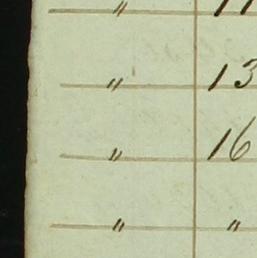 " 11
" 13
" 16
" "